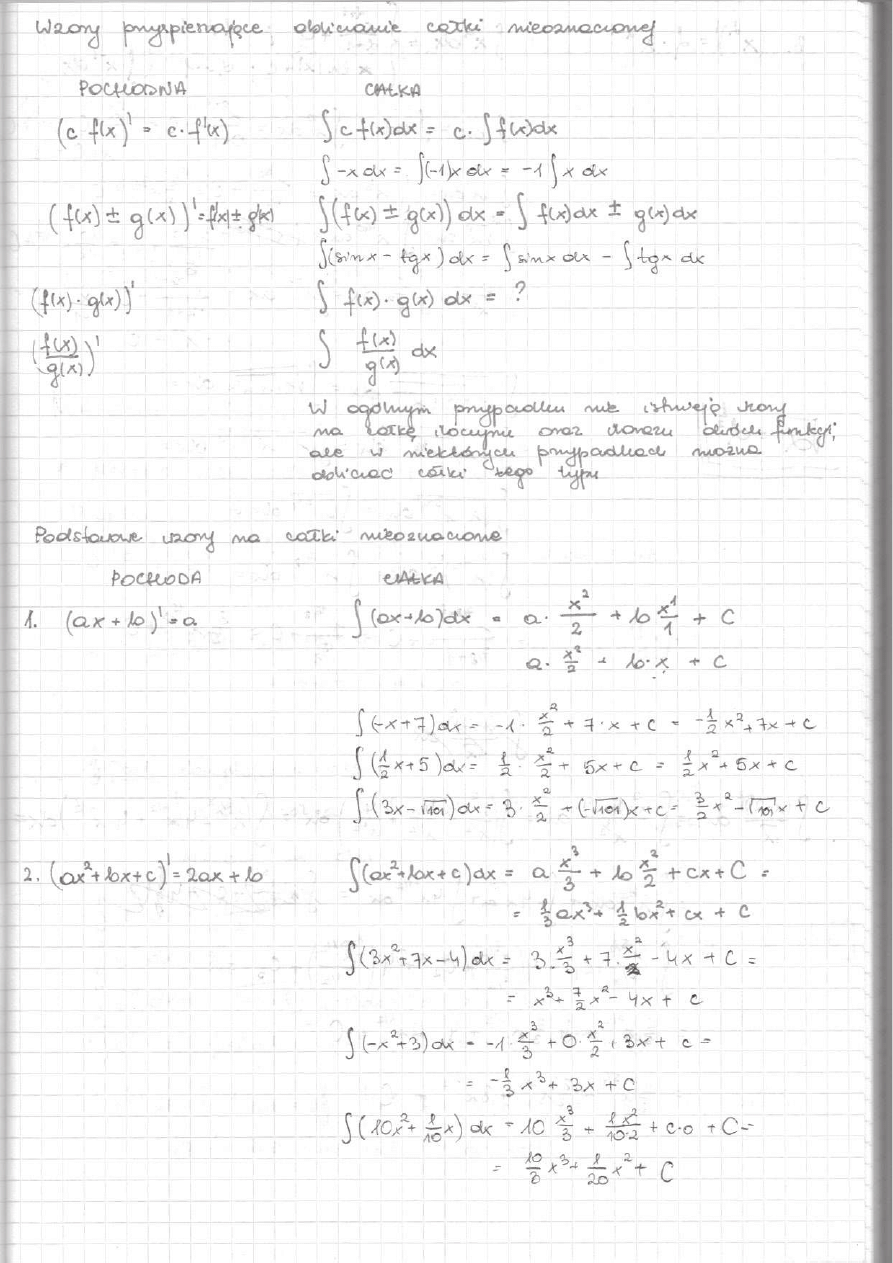 Wzory przyspieszające obliczanie całki nieoznaczonej
POCHODNA CAŁKA
(c f(x))' = c · f'(x) ∫ c f(x)dx = c · ∫ f(x)dx
∫ -x dx = ∫(-1)x dx = -1 ∫ x dx
(f(x) ± g(x))' = f'(x) ± g'(x) ∫(f(x) ± g(x)) dx = ∫ f(x)dx ± g(x)dx
∫(sinx - tgx) dx = ∫ sinx dx - ∫ tgx dx
(f(x) · g(x))' ∫ f(x) · g(x) dx = ?
(f(x)/g(x))' ∫ f(x)/g(x) dx
W ogólnym przypadku nie istnieją wzory
na całkę iloczynu oraz ilorazu dwóch funkcji,
ale w niektórych przypadkach można
obliczać całki tego typu
Podstawowe wzory na całki nieoznaczone
POCHODA CAŁKA
1. (ax + b)' = a ∫(ax+b)dx = a · x²/2 + b x¹/1 + C
a · x²/2 + b·x + C
∫(-x+7)dx = -1 · x²/2 + 7·x + c = -1/2 x² + 7x + c
∫(1/2 x + 5)dx = 1/2 · x²/2 + 5x + c = 1/2 x² + 5x + c
∫(3x - √101)dx = 3 · x²/2 + (-√101)x + c = 3/2 x² - √101 x + c
2. (ax² + bx + c)' = 2ax + b ∫(ax² + bx + c)dx = a x³/3 + b x²/2 + cx + C =
= 1/3 ax³ + 1/2 bx² + cx + C
∫(3x² + 7x - 4)dx = 3 · x³/3 + 7 · x²/2 - 4x + C =
= x³ + 7/2 x² - 4x + c
∫(-x² + 3)dx = -1 · x³/3 + 0 · x²/2 + 3x + c =
= -1/3 x³ + 3x + C
∫(10x² + 1/10 x) dx = 10 x³/3 + 1x²/10·2 + c·0 + C =
= 10/3 x³ + 1/20 x² + C